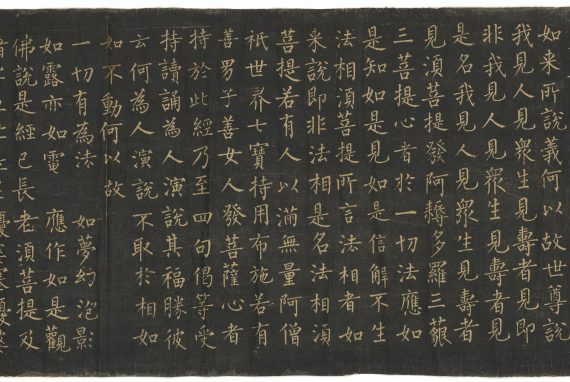 如来所說義何以故世尊說
我見人見衆生見壽者見即
非我見人見衆生見壽者見
是名我見人見衆生見壽者
見湏菩提發阿耨多羅三藐
三菩提心者於一切法應如
是知如是見如是信解不生
法相湏菩提所言法相者如
来說即非法相是名法相湏
菩提若有人以滿無量阿僧
祇世界七寶持用布施若有
善男子善女人發菩薩心者
持於此經乃至四句偈等受
持讀誦為人演說其福勝彼
云何為人演說不取於相如
如不動何以故
一切有為法 如夢幻泡影
如露亦如電 應作如是觀
佛說是經已長老湏菩提及